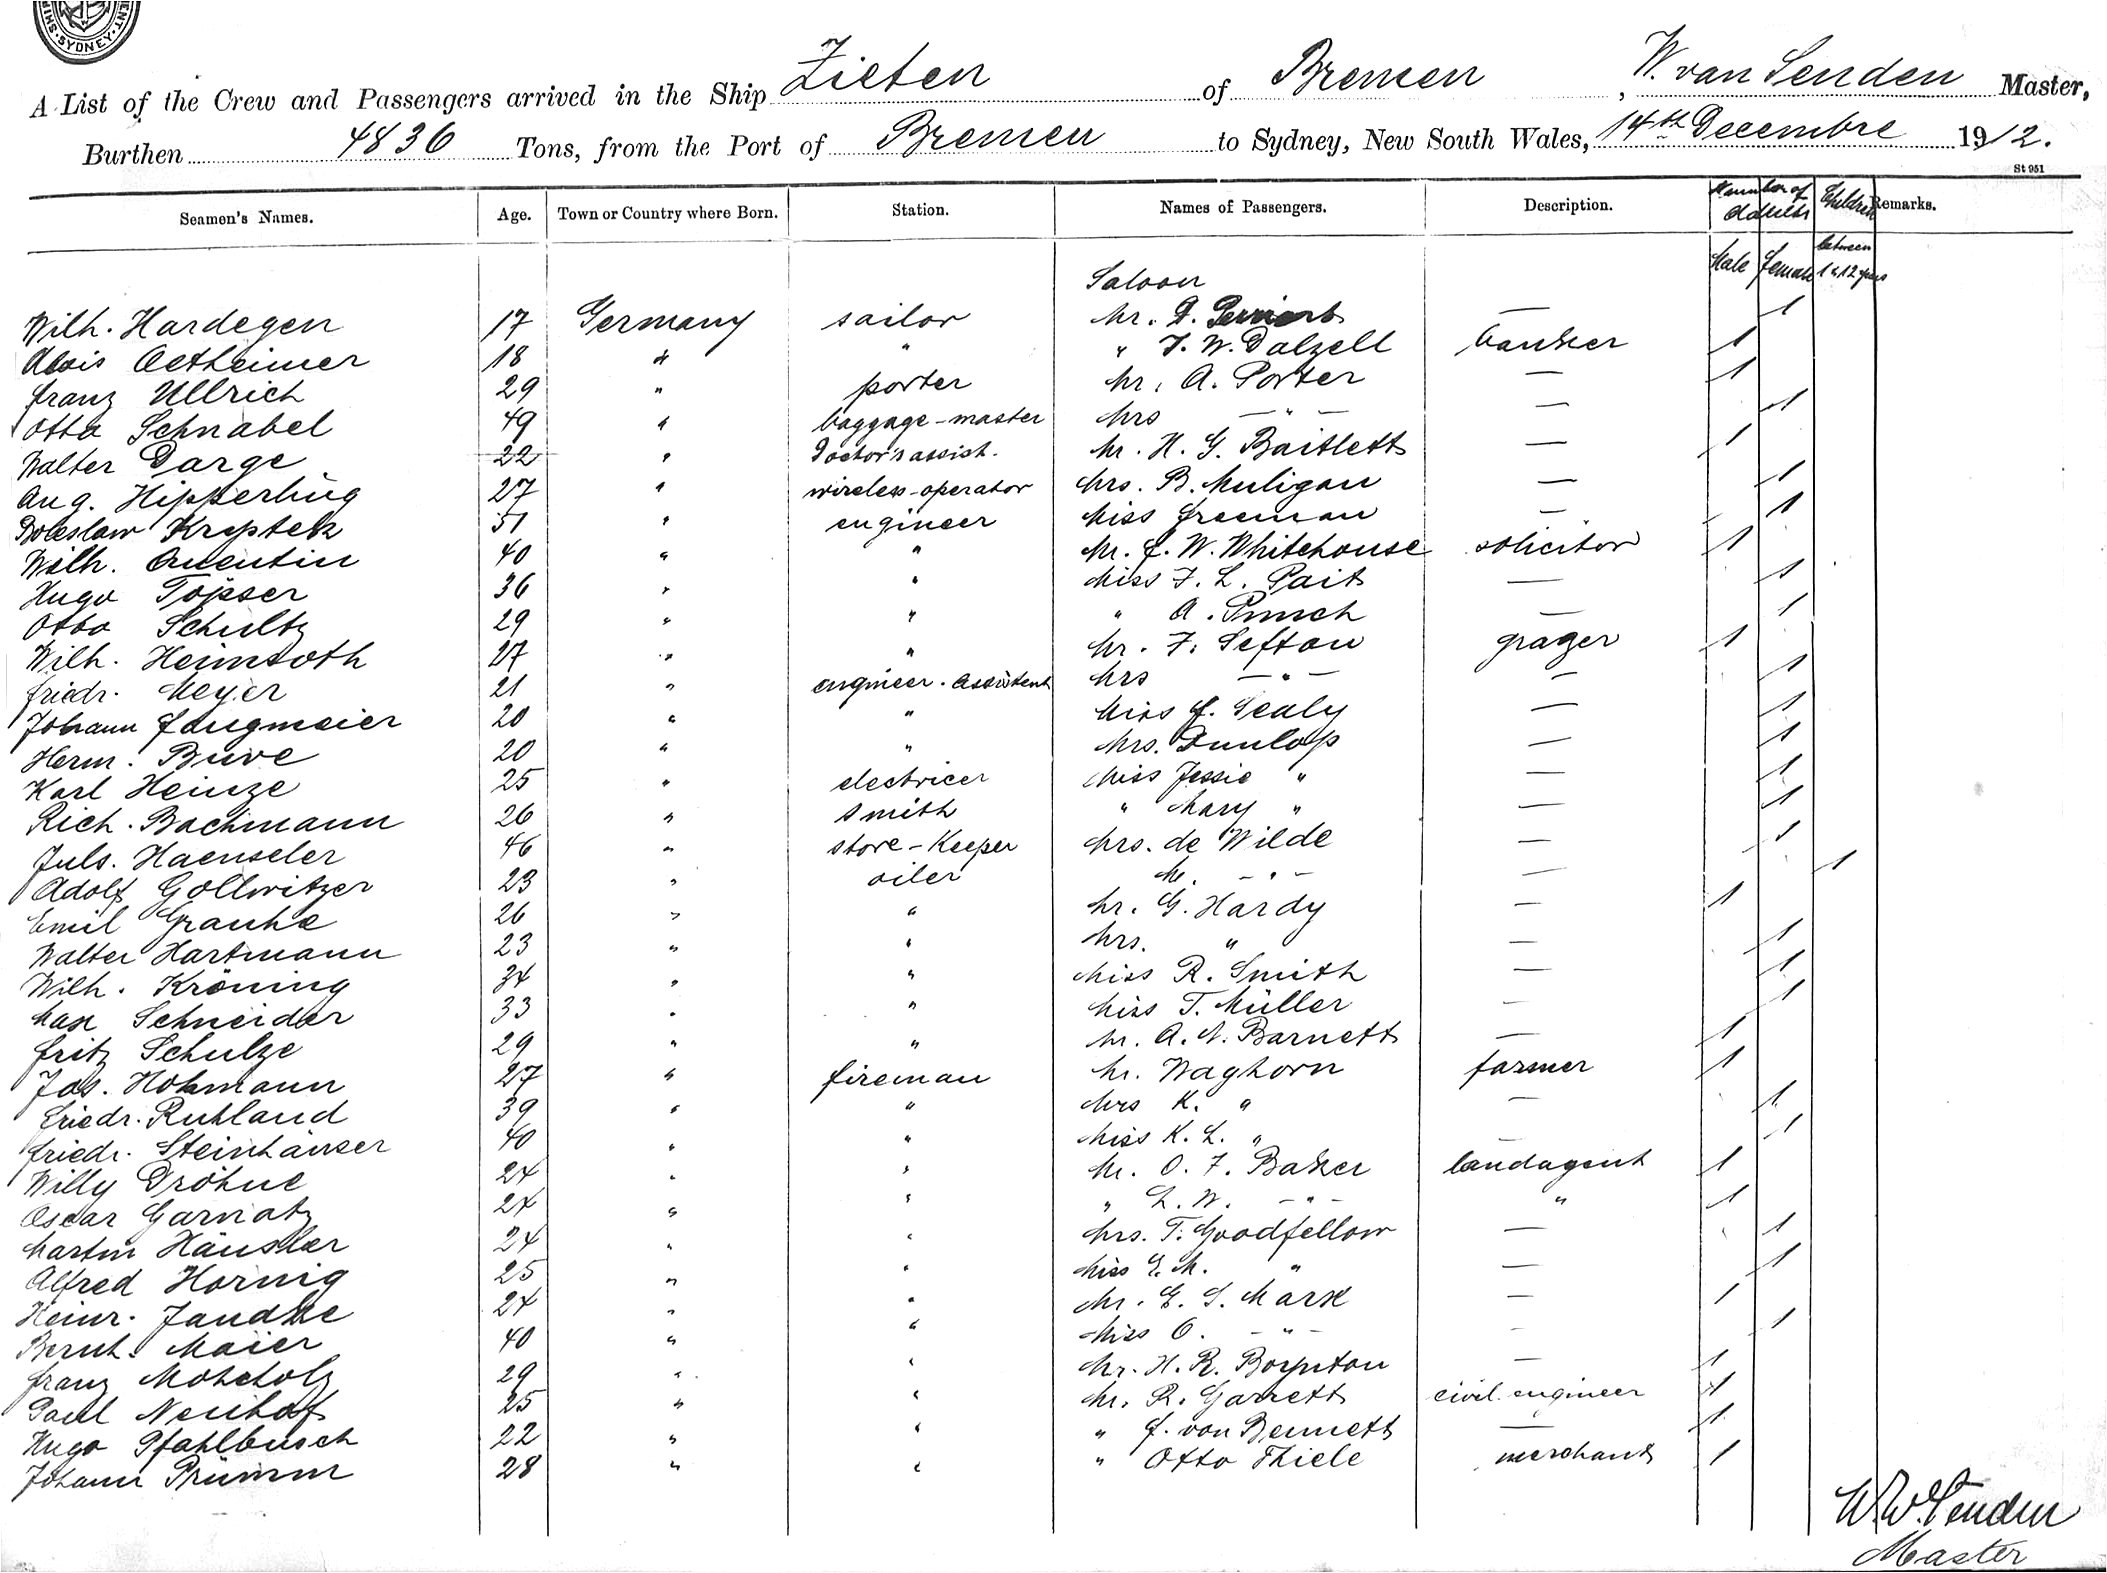 SYDNEY
A List of the Crew and Passengers arrived in the Ship Zieten of Bremen, W. van Senden Master,
Burthen 4836 Tons, from the Port of Bremen to Sydney, New South Wales, 14th Decembre 1912.
St 951
Seamen's Names. Age. Town or Country where Born. Station. Names of Passengers. Description. Number of Adults Children Remarks.
Male Female between 1 & 12 years
Saloon
Wilh. Hardegen 17 Germany sailor Mr. D. — 1
Alois Oetheimer 18 " " " J. W. Dalzell banker 1
Franz Ullrich 29 " porter Mr. A. Porter — 1
Otto Schnabel 49 " baggage-master Mrs — " — — 1
Walter Darge 22 " Doctor's assist. Mr. H. G. Bartlett — 1
Aug. Hipperling 27 " wireless-operator Mrs. B. Muligan — 1
Boleslaw Kryptek 51 " engineer Miss Freeman — 1
Wilh. Quentin 40 " " Mr. F. W. Whitehouse solicitor 1
Hugo Töpser 36 " " Miss F. L. Pait — 1
Otto Schultz 29 " " " A. Punch — 1
Wilh. Heimsoth 27 " " Mr. F. Sefton grazer 1
Friedr. Meyer 21 " engineer-assistent Mrs — " — — 1
Johann Fangmeier 20 " " Miss F. Sealy — 1
Herm. Buve 20 " " Mrs. Dunlop — 1
Karl Heinze 25 " electricer Miss Jessie " — 1
Rich. Bachmann 26 " smith " Mary " — 1
Juls. Haenseler 46 " store-Keeper Mrs. de Wilde — 1
Adolf Gollwitzer 23 " oiler M. — " — — 1
Emil Grauke 26 " " Mr. G. Hardy — 1
Walter Hartmann 23 " " Mrs. " — 1
Wilh. Kröning 34 " " Miss R. Smith — 1
Max Schneider 33 " " Miss T. Müller — 1
Fritz Schulze 29 " " Mr. A. N. Barnett — 1
Jos. Hohmann 27 " fireman Mr. Waghorn farmer 1
Friedr. Ruhland 39 " " Mrs K. " — 1
Friedr. Steinhäuser 40 " " Miss K. L. " — 1
Willy Dröhne 24 " " Mr. O. F. Baker landagent 1
Oscar Garnatz 24 " " " L. W. — " — " 1
Martin Häusler 24 " " Mrs. T. Goodfellow — 1
Alfred Hornig 25 " " Miss E. M. " — 1
Heinr. Jandke 24 " " Mr. E. S. Mark — 1
Bernh. Maier 40 " " Miss O. — " — — 1
Franz Moteholz 29 " " Mr. H. R. Boynton — 1
Paul Neuhof 25 " " Mr. R. Garrett civil engineer 1
Hugo Pfahlbusch 22 " " " F. von Bennett — 1
Johann Prümm 28 " " " Otto Thiele merchant 1
W. v. Senden
Master